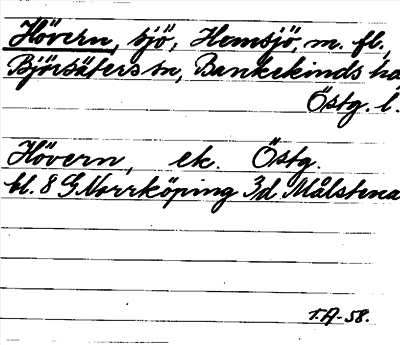 Hövern, sjö, Hemsjö, m. fl.,
Björsäters sn, Bankekinds hd
Östg. l.
Hövern, ek. Östg.
bl. 8 G Norrköping 3d Målstena
T.A-58.